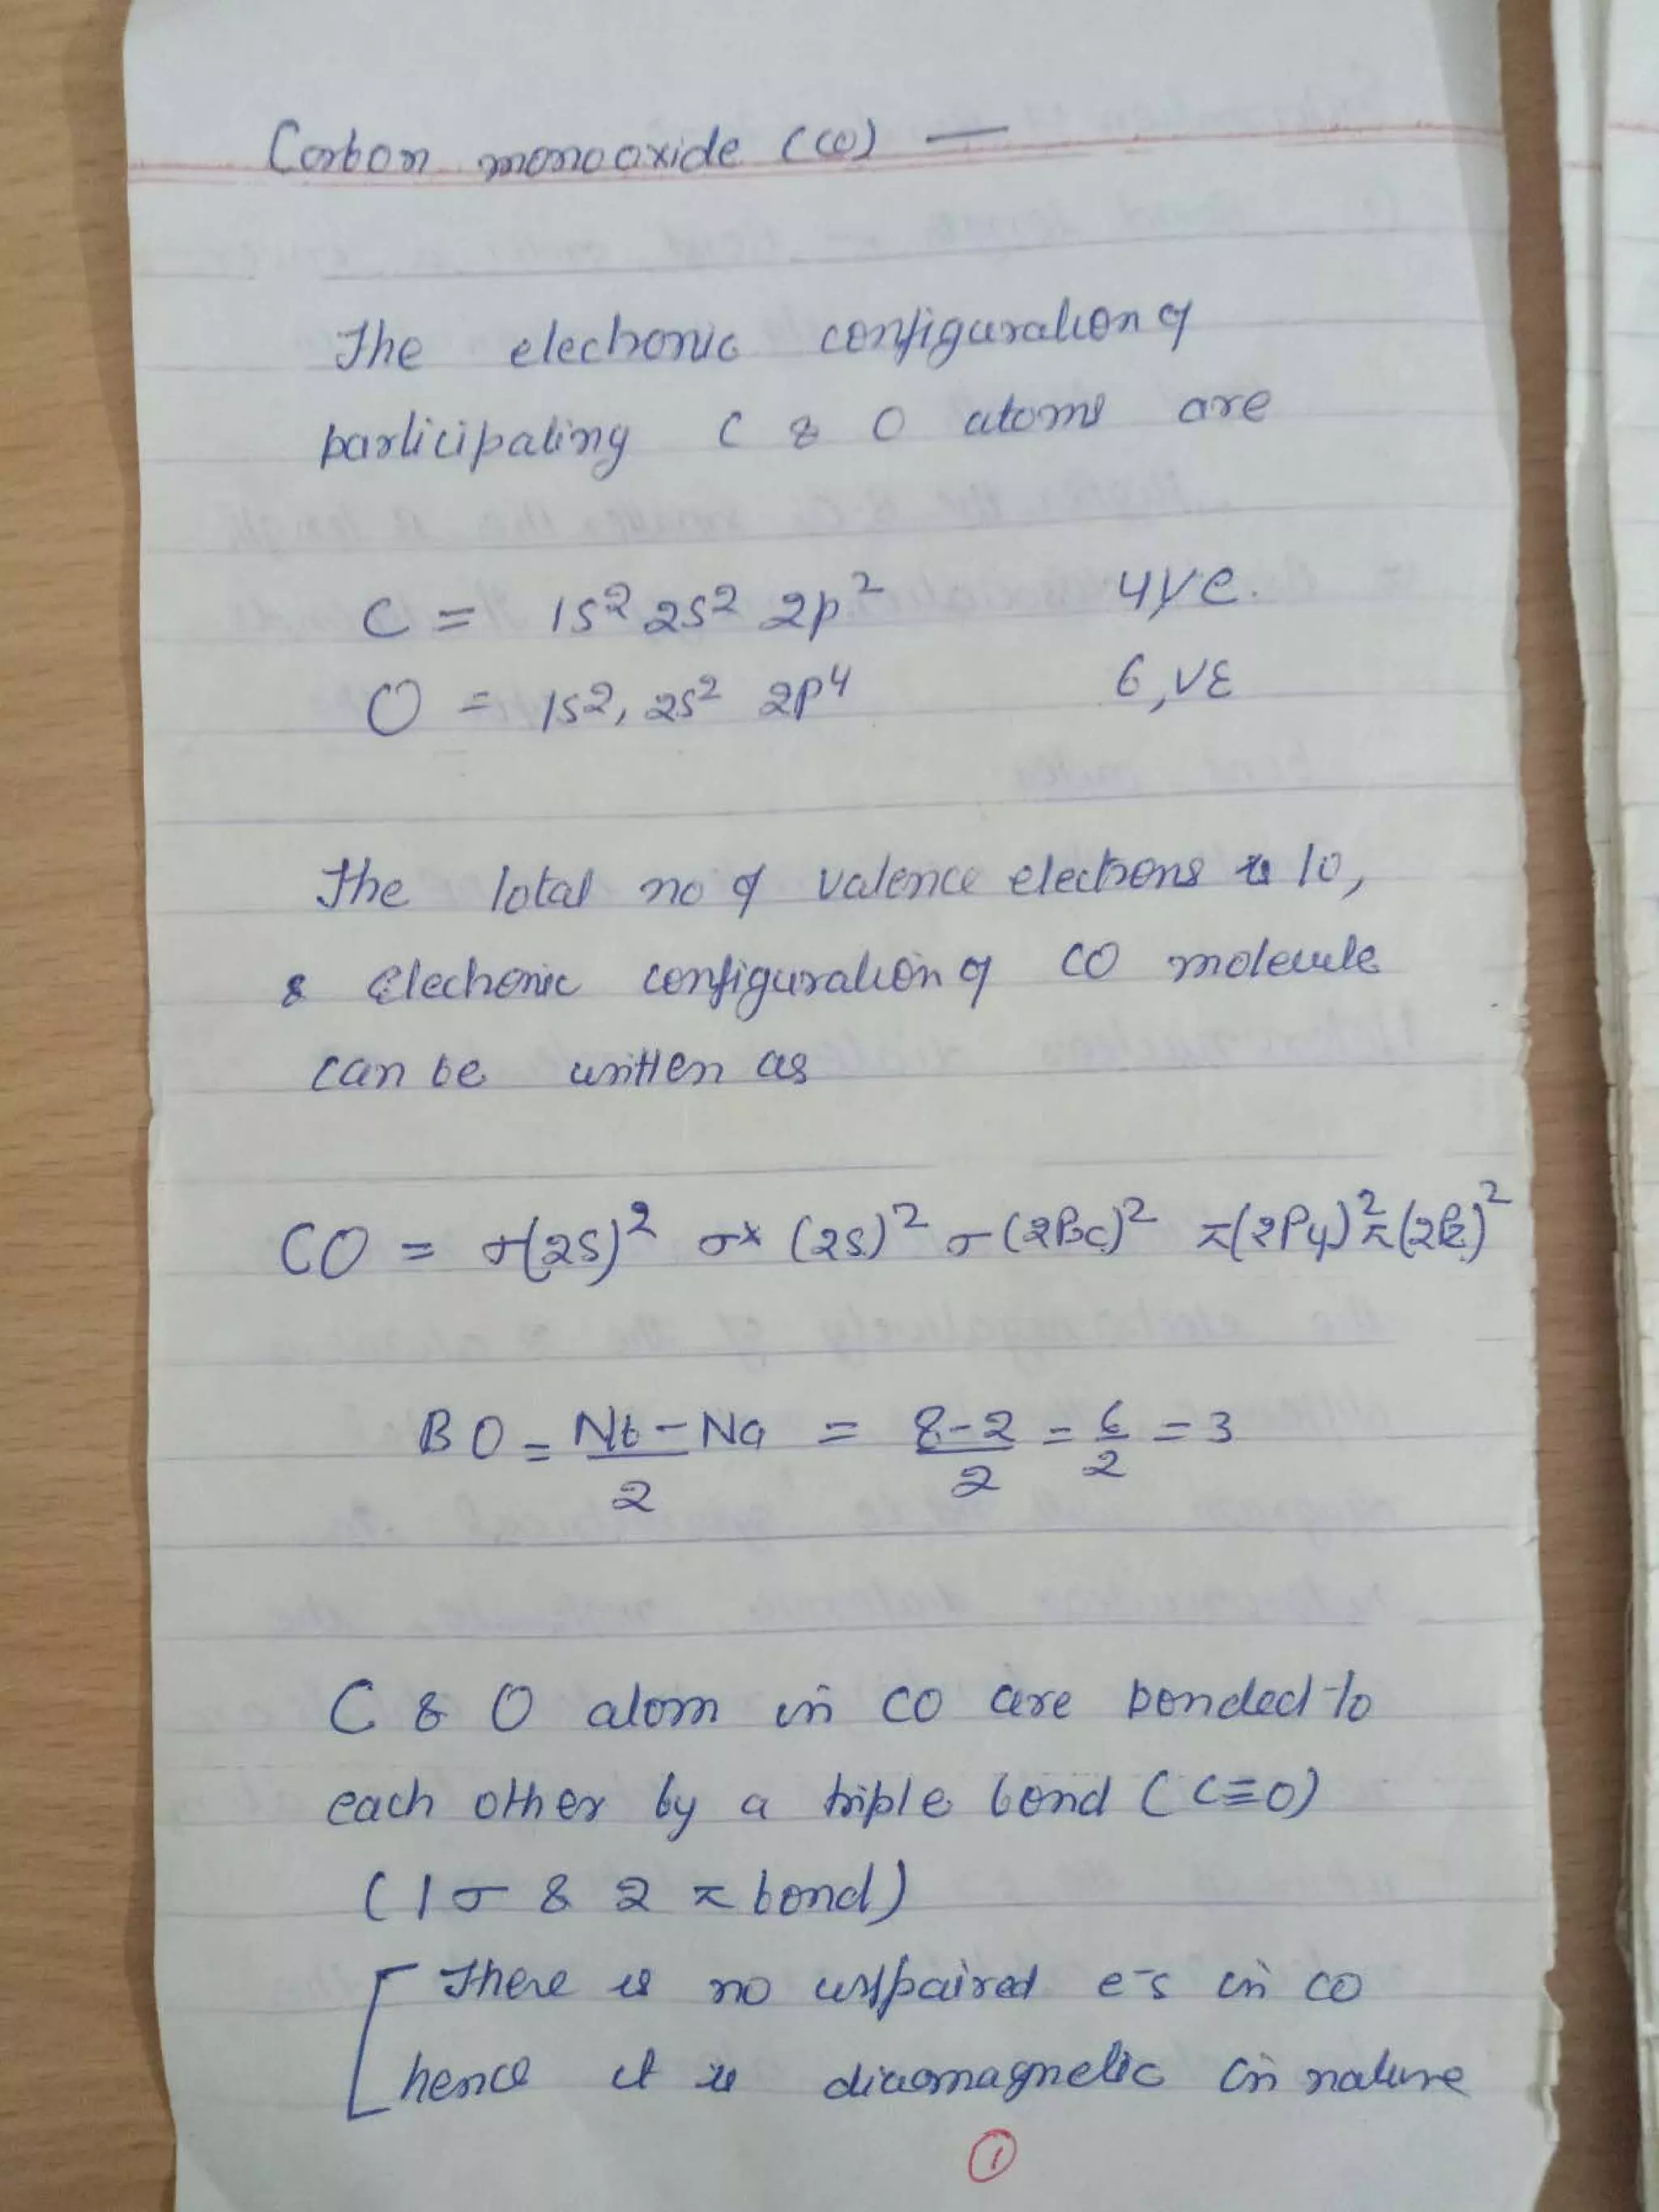 Carbon monooxide (CO) —
The electronic configuration of
participating C & O atoms are
C = 1s² 2s² 2p² 4Ve.
O = 1s², 2s² 2p⁴ 6,VE
The total no of valence electrons is 10,
& Electronic configuration of CO molecule
can be written as
CO = σ(2s)² σ* (2s)² σ(2Px)² π(2Py)² π(2Pz)²
BO = Nb - Na / 2 = 8-2 / 2 = 6 / 2 = 3
C & O atom in CO are bonded to
each other by a triple bond (C≡O)
(1σ & 2 π bond)
There is no unpaired e⁻s in CO
hence it is diamagnetic in nature
1